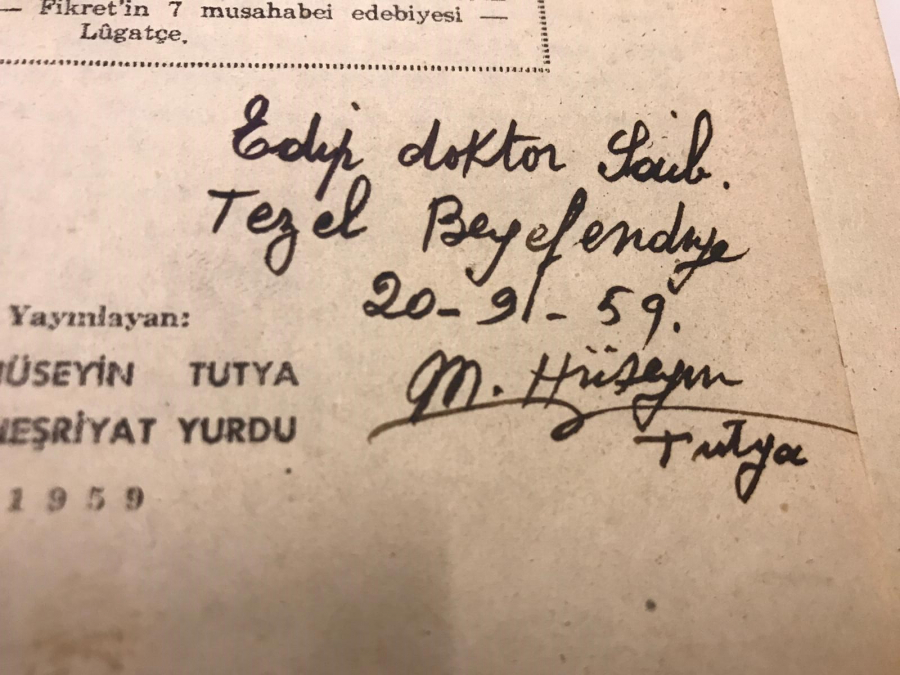 — Fikret'in 7 musahabei edebiyesi —
Lûgatçe.
Edip doktor Saib.
Tezel Beyefendiye
20-9-59.
Yayınlayan:
HÜSEYİN TUTYA
NEŞRİYAT YURDU
1959
M. Hüseyin
Tutya